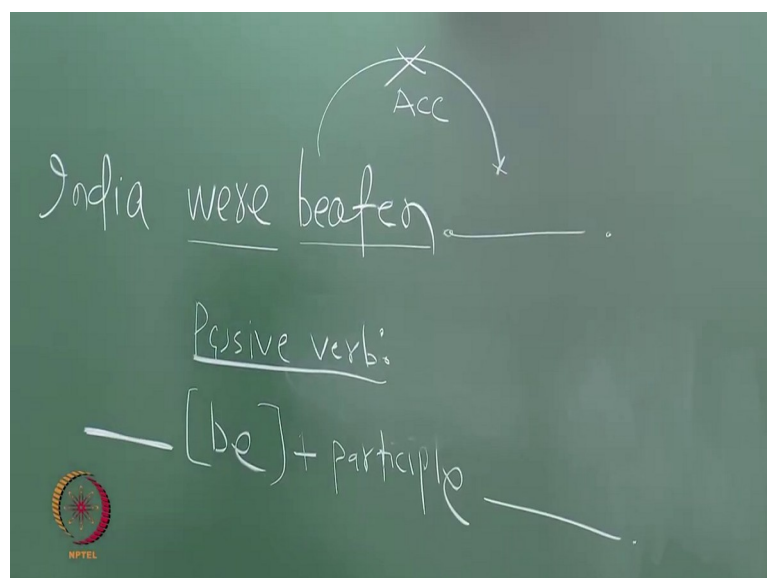 ACC
India were beaten ______ .
Passive verb:
___ [be] + participle ______ .
NPTEL